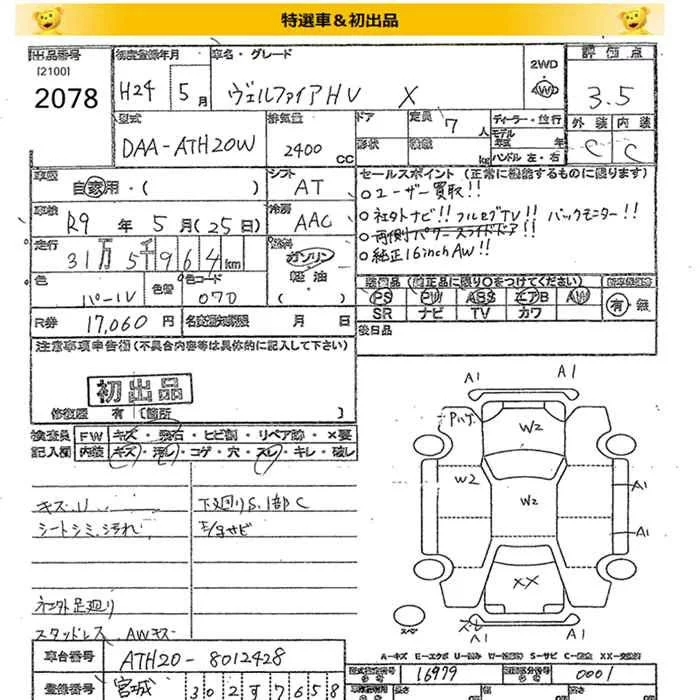 特選車&初出品
出品番号 初度登録年月 車名・グレード 2WD 評価点
[2100]
2078 H24 5月 ヴェルファイアHV X 4WD 3.5
型式 排気量 ドア 定員 7人 ディーラー・並行 外装 内装
DAA-ATH20W 2400cc 形状 積載 kg モデル年式 年 ハンドル 左・右 C C
車歴 シフト セールスポイント (正常に機能するものに限ります)
自家用・( ) AT ○ユーザー買取!!
車検 冷房 ○社外ナビ!! フルセグTV!! バックモニター!!
R9年5月(25日) AAC ○両側パワースライドドア!!
走行 燃料 ○純正16inchAW!!
31万5千964km ガソリン
軽油
色 色替 色コード ( ) 装備品(純正品に限り○をつけてください)
パール 070 PS PW ABS エアB AW 有・無
R券 17,060円 名変期限 月 日 SR ナビ TV カワ
後日品
注意事項申告欄(不具合内容等は具体的に記入して下さい)
初出品
修復歴 有 [箇所 ]
検査員 FW キズ・飛石・ヒビ割・リペア跡・×要
記入欄 内装 キズ・汚レ・コゲ・穴・スレ・キレ・破レ
キズ.U 下廻りS.1部C
シートシミ.汚れ
社外足廻り
スタッドレス AWキズ
A1 A1
W2
W2 W2 A1
A1
XX
スペア
A1 A1
A-キズ E-エクボ U-凹み W-波状態 S-サビ C-腐食 XX-交換済
車台番号 ATH20-8012428 型式指定番号 16979 類別区分番号 0001
登録番号 宮城 302す7658 長さ 幅 高さ